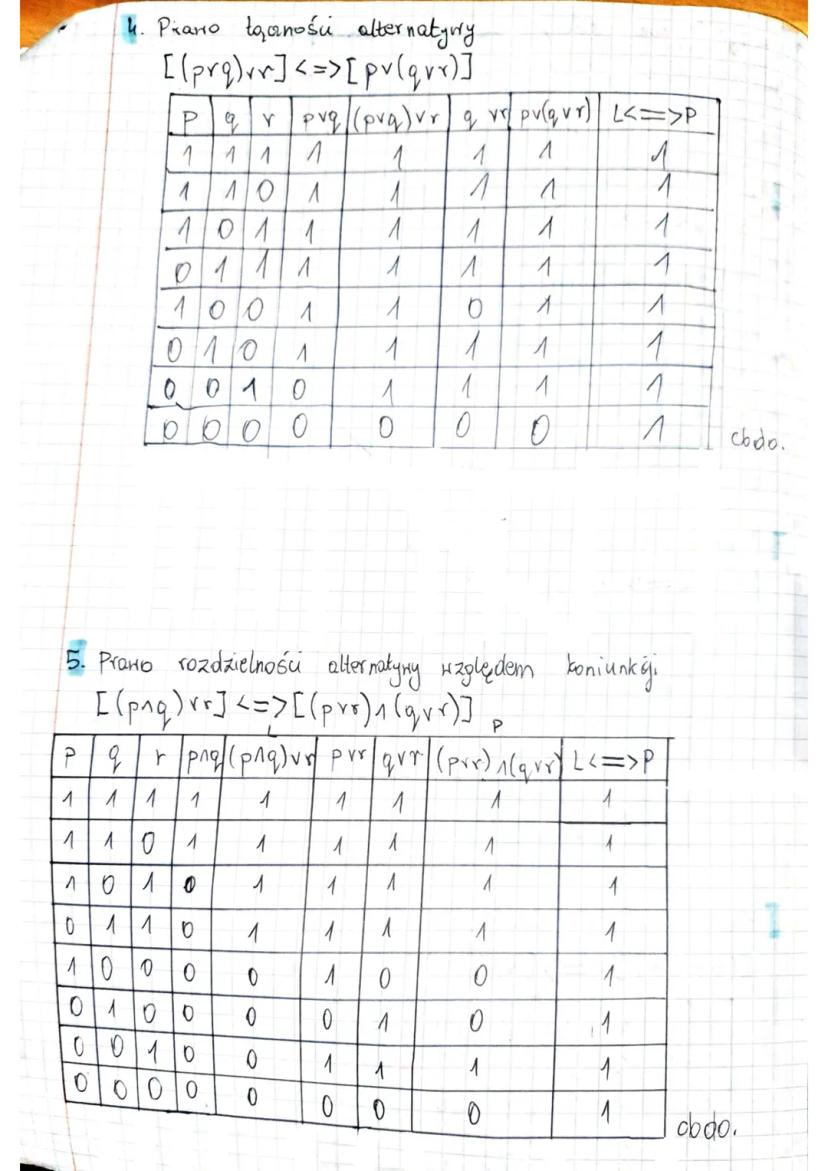 4. Prawo łączności alternatywy
[(pvq)vr]<=>[pv(qvr)]
p q r pvq (pvq)vr q vr pv(qvr) L<=>P
1 1 1 1 1 1 1 1
1 1 0 1 1 1 1 1
1 0 1 1 1 1 1 1
0 1 1 1 1 1 1 1
1 0 0 1 1 0 1 1
0 1 0 1 1 1 1 1
0 0 1 0 1 1 1 1
0 0 0 0 0 0 0 1
cbdo.
5. Prawo rozdzielności alternatywy względem koniunkcji
[(p∧q)vr]<=>[(pvr)∧(qvr)]
L P
p q r p∧q (p∧q)vr pvr qvr (pvr)∧(qvr) L<=>P
1 1 1 1 1 1 1 1 1
1 1 0 1 1 1 1 1 1
1 0 1 0 1 1 1 1 1
0 1 1 0 1 1 1 1 1
1 0 0 0 0 1 0 0 1
0 1 0 0 0 0 1 0 1
0 0 1 0 0 1 1 1 1
0 0 0 0 0 0 0 0 1
cbdo.